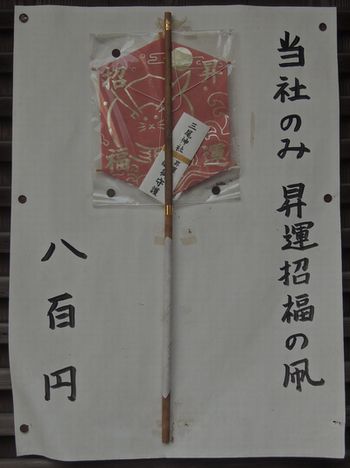 当社のみ 昇運招福の凧
八百円
昇運
招福
三尾神社
守護